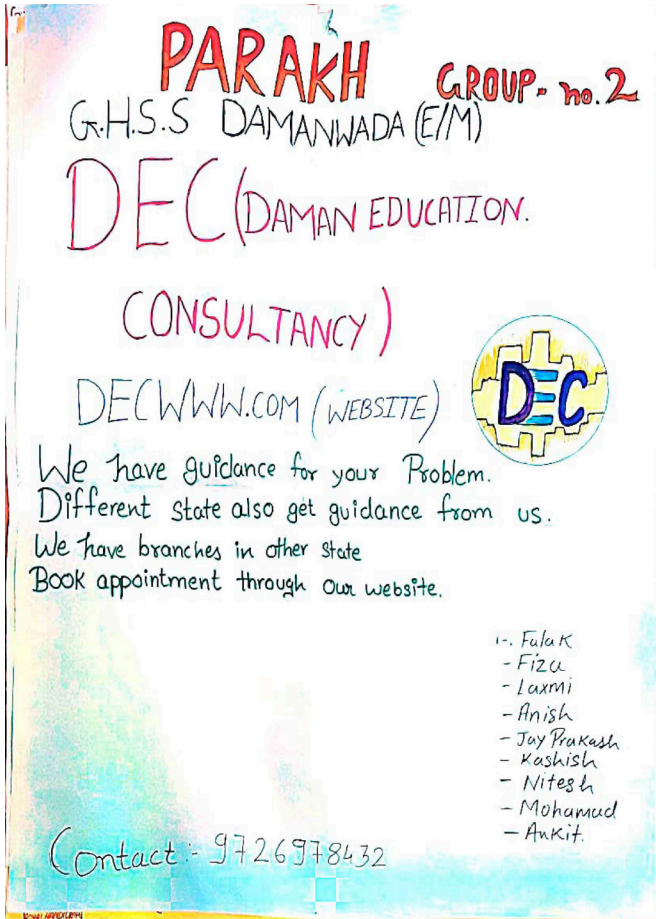 PARAKH GROUP- no.2
G.H.S.S DAMANWADA (E/M)
DEC (DAMAN EDUCATION.
CONSULTANCY)
DECWWW.COM (WEBSITE)
DEC
We have guidance for your Problem.
Different state also get guidance from us.
We have branches in other state
Book appointment through our website.
1-. Falak
- Fiza
- Laxmi
- Anish
- Jay Prakash
- Kashish
- Nitesh
- Mohamad
- Ankit.
Contact:- 9726978432